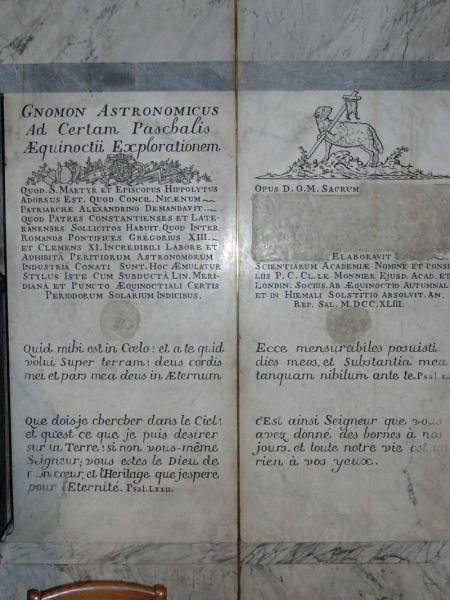 GNOMON ASTRONOMICUS
Ad Certam Paschalis
Æquinoctii Explorationem
QUOD. S. MARTYR ET EPISCOPUS HIPPOLYTUS
ADORSUS EST. QUOD CONCIL. NICÆNUM
PATRIARCHÆ ALEXANDRINO DEMANDAVIT.
QUOD PATRES CONSTANTIENSES ET LATE-
RANENSES SOLLICITOS HABUIT. QUOD INTER
ROMANOS PONTIFICES GREGORIUS XIII.
ET CLEMENS XI. INCREDIBILI LABORE ET
ADHIBITÂ PERITIORUM ASTRONOMORUM
INDUSTRIÂ CONATI SUNT. HOC ÆMULATUR
STYLUS ISTE CUM SUBDUCTÂ LIN. MERI-
DIANÂ ET PUNCTO ÆQUINOCTIALI CERTIS
PERIODORUM SOLARIUM INDICIBUS.
Quid mihi est in Cœlo: et a te quid
volui Super terram: deus cordis
mei et pars mea deus in Æternum
Que dois je chercher dans le Ciel:
et qu'est ce que je puis desirer
sur la Terre: si non vous-même
Seigneur; vous estes le Dieu de
mon cœur, et l'Heritage que j'espere
pour l'Eternité. Psal. LXXII.
OPUS D. O. M. SACRUM
ELABORAVIT
SCIENTIARUM ACADEMIÆ NOMINE ET CONSI
LIIS P. CL. LE MONNIER EJUSD. ACAD. ET
LONDIN. SOCIUS. AB ÆQUINOCTIO AUTUMNAL
ET IN HIEMALI SOLSTITIO ABSOLVIT. AN.
REP. SAL. M.DCC.XLIII.
Ecce mensurabiles posuisti
dies meos, et Substantia mea
tanquam nihilum ante te.
c'Est ainsi Seigneur que vous
avez donné des bornes à nos
jours. et toute notre vie est un
rien à vos yeux.